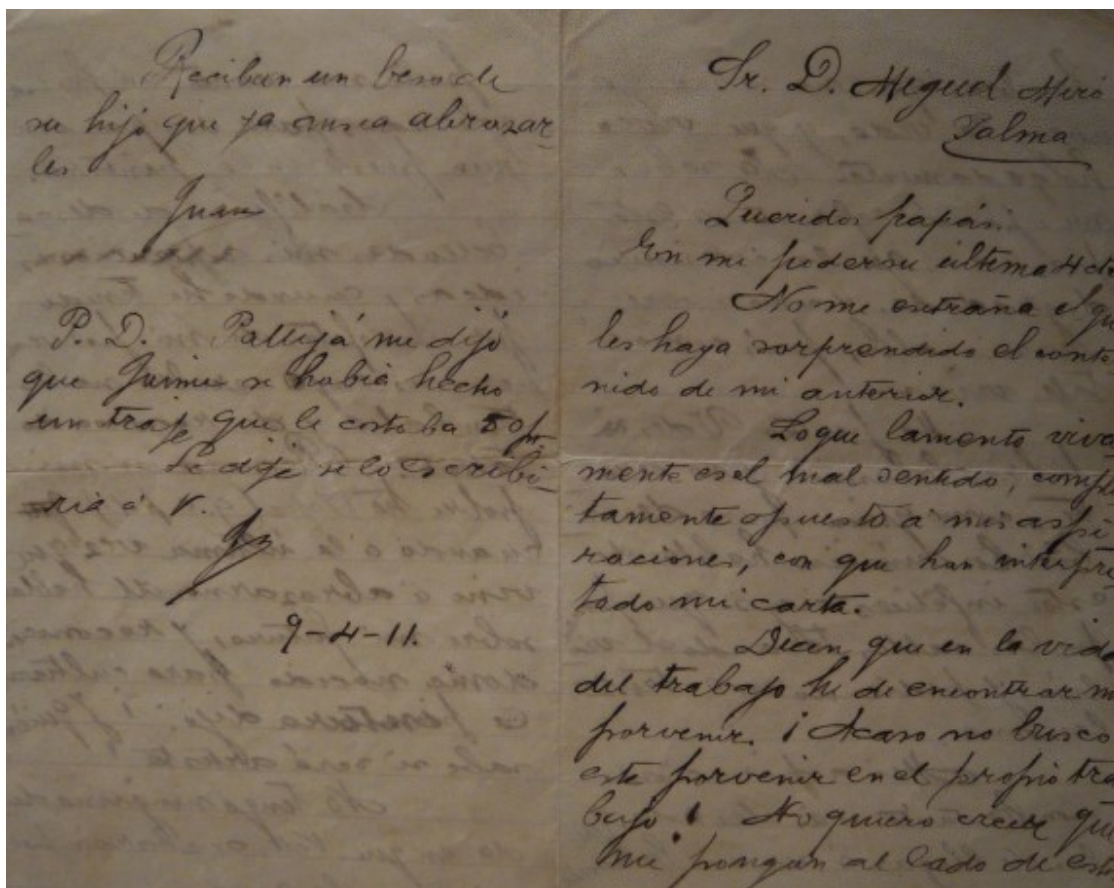 Reciban un beso de
su hijo que ya ansia abrazar-
les
Juan
P. D. Pallejá me dijo
que Jaime se habia hecho
un traje que le costaba 50 pts.
Le dije se lo escribi-
ria á V.
9-4-11.
Sr. D. Miguel Miró
Palma
Queridos papás.
En mi poder su última 4 cte
No me extraña el que
les haya sorprendido el conte
nido de mi anterior.
Lo que lamento viva
mente es el mal sentido, comple
tamente opuesto a mis aspi
raciones, con que han interpre
tado mi carta.
Dicen que en la vida
del trabajo he de encontrar mi
porvenir. ¡Acaso no busco
este porvenir en el propio tra
bajo! No quiero creer que
me pongan al lado de